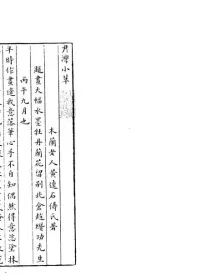 小草
木蘭女人黃遠石傅氏著
題畫大幅水墨牡丹蘭花留別北倉趙功先生
丙午九月也
平時作畫逢我意落筆心手不自知偶然得意恣塗抹